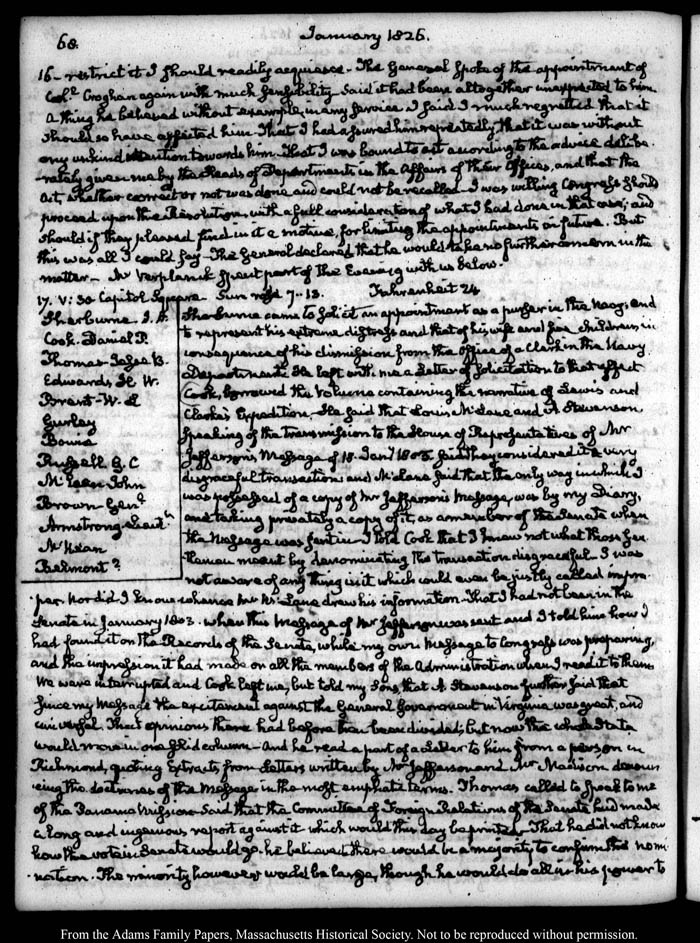 68.
January 1826.
16 – restrict it I should readily acquiesce – The General spoke of the appointment of
Coll. Croghan again with much sensibility. Said it had been altogether unexpected to him.
A thing he believed without example in any service. I said I much regretted that it
should so have affected him. That I had assured him repeatedly that it was without
any unkind intention towards him. That I was bound to act according to the advice delibe-
rately given me by the Heads of Departments in the Affairs of their Offices, and that the
Act, whether correct or not was done and could not be recalled. I was willing Congress should
proceed upon the Resolution, with a full consideration of what I had done in that case; and
should if they pleased find in it a motive, for limiting the appointments in future. But
this was all I could say – The General declared that he would take no further concern in the
matter – Mr Verplanck spent part of the Evening with us below.
17. V: 30 Capitol Square. Sun rose 7–13. Fahrenheit 24
Sherburne J. H.
Cook. Daniel P.
Thomas Jesse B.
Edwards H. W.
Brent W. L
Gurley
Bouis
Russell G. C
McLean John
Brown Genl.
Armstrong
McKean
Belmont?
Sherburne came to solicit an appointment as a purser in the Navy; and
to represent his extreme distress and that of his wife and five children, in
consequence of his dismission from the Office of a Clerk in the Navy
Department. He left with me a Letter of solicitation to that effect
Cook, borrowed the Volume containing the narrative of Lewis and
Clarke's Expedition. He said that Louis McLane and A Stevenson
speaking of the transmission to the House of Representatives of Mr
Jefferson's Message of 18. Jany 1803 said they considered it a very
disgraceful transaction and McLane said that the only way in which I
was possessed of a copy of Mr Jefferson's Message, was by my Diary,
and taking privately a copy of it, as a member of the Senate when
the Message was sent in – I told Cook that I knew not what those Gen-
tlemen meant by denominating the transaction disgraceful – I was
not aware of any thing in it which could even be justly called impro-
per. Nor did I know whence Mr McLane drew his information – That I had not been in the
Senate in January 1803. when this Message of Mr Jefferson was sent and I told him how I
had found it on the Records of the Senate, while my own Message to Congress was preparing,
and the impression it had made on all the members of the Administration when I read it to them
We were interrupted and Cook left me, but told my Sons, that A. Stevenson further said that
since my Message the excitement against the General Government in Virginia was great, and
universal. That opinions there had before been divided, but now the whole State
would move in one solid column – And he read a part of a Letter to him from a person in
Richmond, quoting Extracts from Letters written by Mr Jefferson and Mr Madison denoun-
cing the doctrines of the Message in the most emphatic terms. Thomas called to speak to me
of the Panama Mission – Said that the Committee of Foreign Relations of the Senate had made
a long and ingenious report against it which would this day be printed – That he did not know
how the vote in Senate would go – he believed there would be a majority to confirm the nomi-
nation. The minority however would be large, though he would do all in his power to
From the Adams Family Papers, Massachusetts Historical Society. Not to be reproduced without permission.